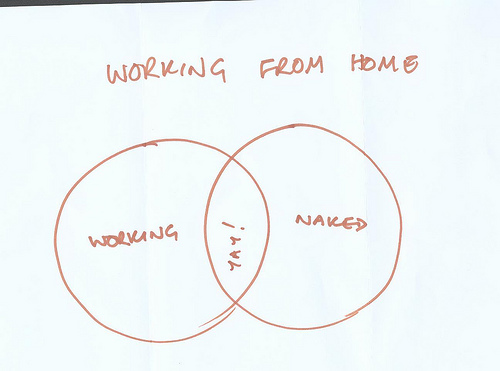 WORKING FROM HOME
WORKING
YAY!
NAKED